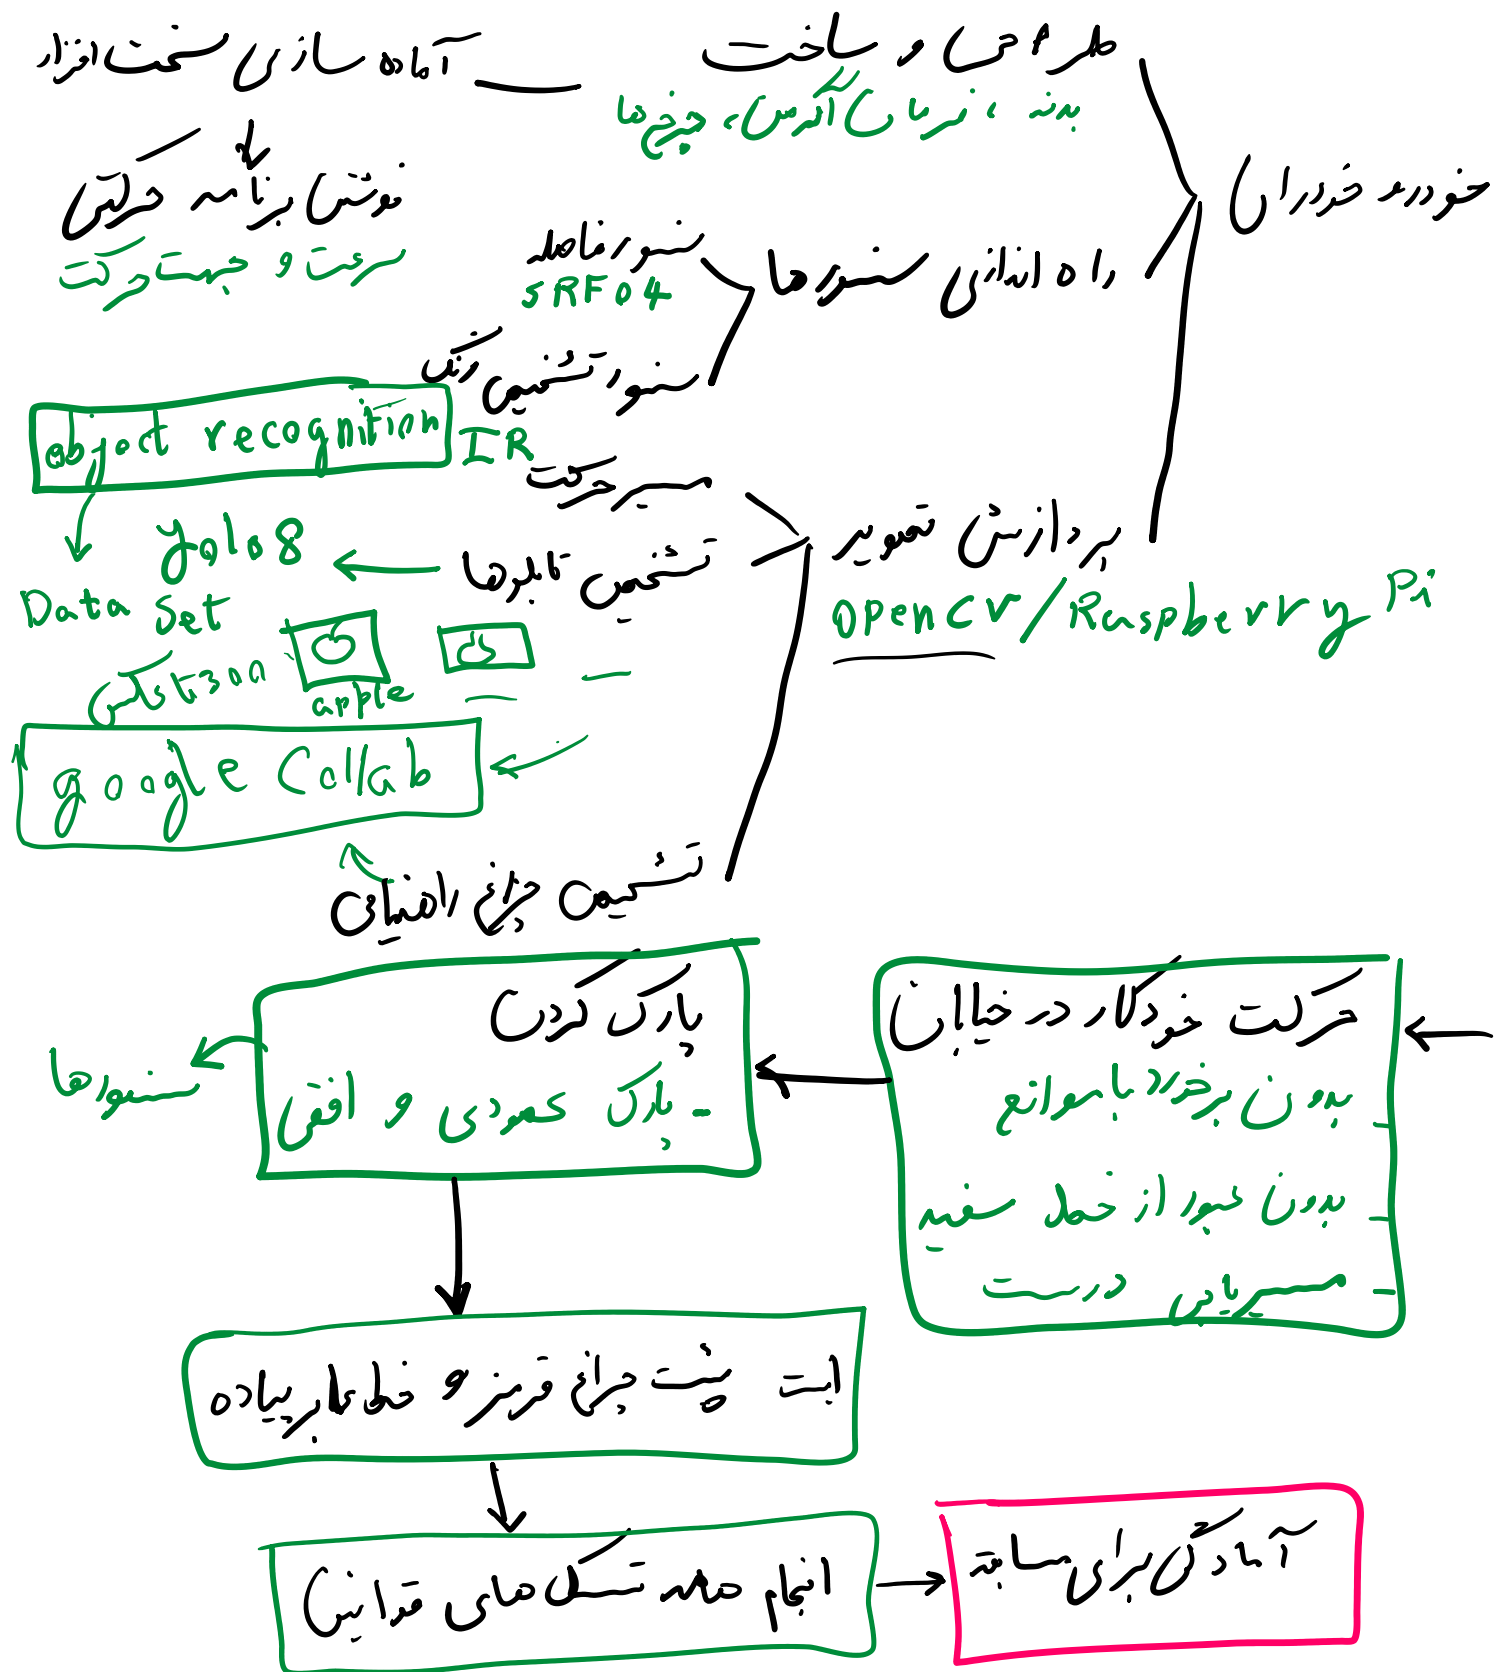 خودرو خودران
طراحی و ساخت
بدنه ، فرمان آکرمن، چرخ‌ها
آماده سازی سخت افزار
نوشتن برنامه حرکتی
سرعت و جهت حرکت
راه اندازی سنسورها
سنسور فاصله
SRF04
سنسور تشخیص رنگ
IR
پردازش تصویر
OpenCV/Raspberry Pi
مسیر حرکت
تشخیص تابلوها
yolo8
object recognition
Data Set
apple
google Collab
تشخیص چراغ راهنمایی
حرکت خودکار در خیابان
- بدون برخورد با موانع
- بدون عبور از خط سفید
- مسیریابی درست
پارک کردن
- پارک عمودی و افقی
سنسورها
ایست پشت چراغ قرمز و خط عابر پیاده
انجام همه تسک های قوانین
آمادگی برای مسابقه